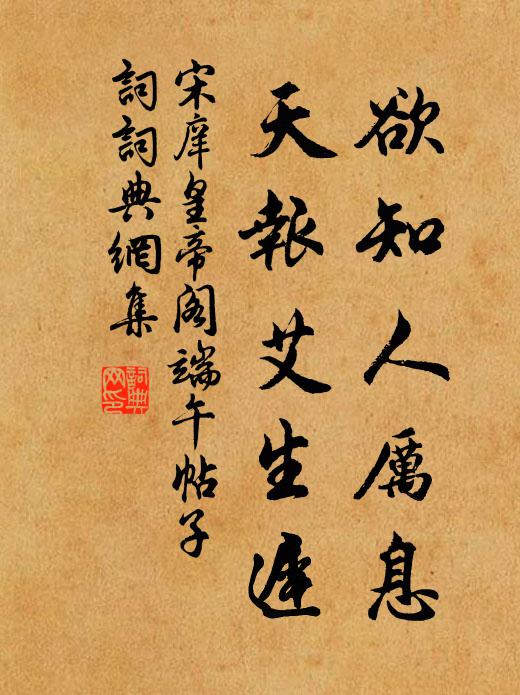 欲知人厲息
天報艾生遲
宋庠皇帝阁端午帖子
詞詞典網集
詞典網印